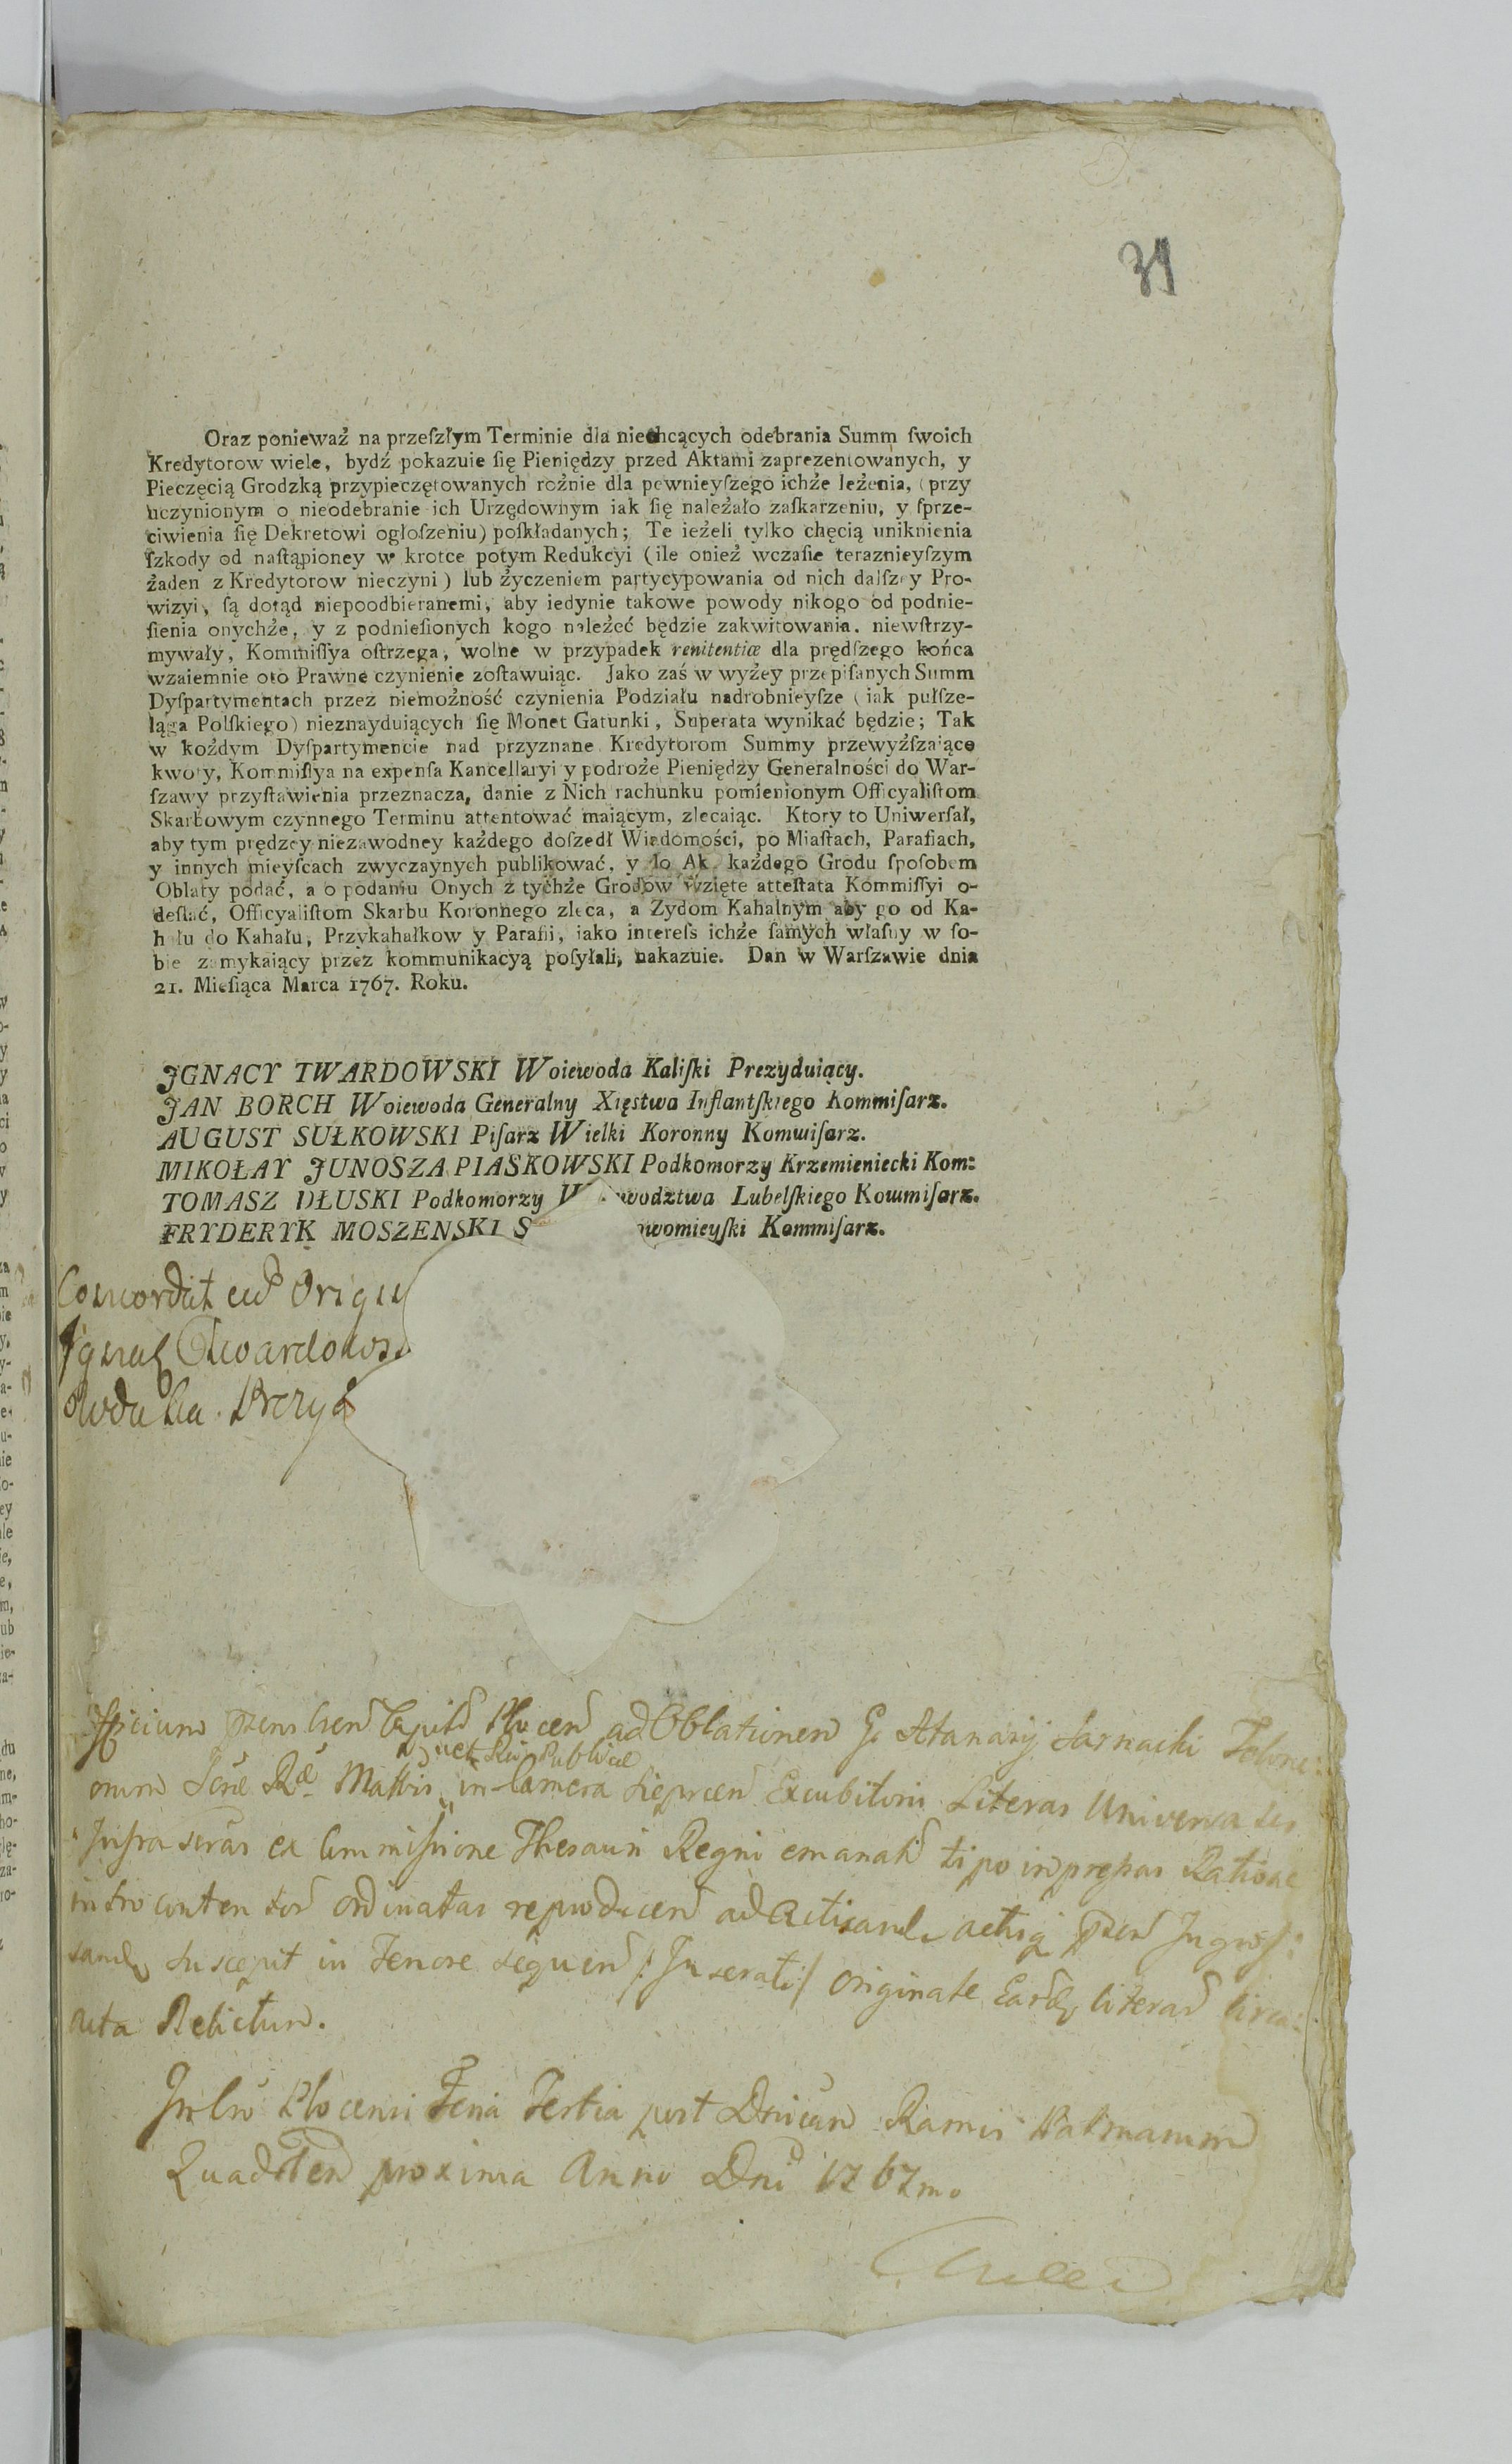 39
Oraz ponieważ na przeſzłym Terminie dla niechcących odebrania Summ ſwoich
Kredytorow wiele, bydź pokazuie ſię Pieniędzy przed Aktami zaprezentowanych, y
Pieczęcią Grodzką przypieczętowanych rożnie dla pewnieyſzego ichże leżenia, (przy
uczynionym o nieodebranie ich Urzędownym iak ſię należało zaſkarzeniu, y ſprze-
ciwienia ſię Dekretowi ogłoſzeniu) poſkładanych; Te ieżeli tylko chęcią uniknienia
ſzkody od naſtąpioney w krotce potym Redukcyi (ile onież wczaſie teraznieyſzym
żaden z Kredytorow nieczyni) lub życzeniem partycypowania od nich dalſzey Pro-
wizyi, ſą dotąd niepoodbieranemi, aby iedynie takowe powody nikogo od podnie-
ſienia onychże, y z podnieſionych kogo należeć będzie zakwitowania, niewſtrzy-
mywały, Kommiſſya oſtrzega, wolne w przypadek renitentiæ dla prędſzego końca
wzaiemnie oto Prawne czynienie zoſtawuiąc. Jako zaś w wyżey przepiſanych Summ
Dyſpartymentach przez niemożność czynienia Podziału nadrobnieyſze (iak pułſze-
ląga Polſkiego) nieznayduiących ſię Monet Gatunki, Superata wynikać będzie; Tak
w kożdym Dyſpartymencie nad przyznane Kredytorom Summy przewyżſzaiące
kwoty, Kommiſſya na expenſa Kancellaryi y podroże Pieniędzy Generalności do War-
ſzawy przyſtawienia przeznacza, danie z Nich rachunku pomienionym Officyaliſtom
Skarbowym czynnego Terminu attentować maiącym, zlecaiąc. Ktory to Uniwerſał,
aby tym prędzey niezawodney każdego doſzedł Wiadomości, po Miaſtach, Parafiach,
y innych mieyſcach zwyczaynych publikować, y do Ak. każdego Grodu ſpoſobem
Oblaty podać, a o podaniu Onych z tychże Grodow wzięte atteſtata Kommiſſyi o-
deſłać, Officyaliſtom Skarbu Koronnego zleca, a Zydom Kahalnym aby go od Ka-
hału do Kahału, Przykahałkow y Parafii, iako intereſs ichże ſamych własny w ſo-
bie zamykaiący przez kommunikacyą poſyłali, nakazuie. Dan w Warſzawie dnia
21. Mieſiąca Marca 1767. Roku.
JGNACY TWARDOWSKI Woiewoda Kaliſki Prezyduiący.
JAN BORCH Woiewoda Generalny Xięstwa Inflantſkiego Kommiſarz.
AUGUST SUŁKOWSKI Piſarz Wielki Koronny Kommiſarz.
MIKOŁAY JUNOSZA PIASKOWSKI Podkomorzy Krzemieniecki Kom:
TOMASZ DŁUSKI Podkomorzy W wodztwa Lubelſkiego Kommiſarz.
FRYDERYK MOSZENSKI S womieyſki Kommiſarz.
Concordat cu Origin
Jgnacy Twardows
Woda Ka. Prezyd
Officium Capit Plocen ad Oblationem G. Atanazy Sarnacki Telone:
et Rei Publicae
orum Matis in Camera Sieprcen Excubitoris Literas Universales
Infra scras ex Commissione Thesauri Regni emanat tipo impressas Ratione
intro contentor ordinatas reproducen ad acticand actisq pnen Ingros:
sand suscepit in Tenore sequen /: Inserat:/ originale Eard literar circa:
acta Relictum.
Plocensi Feria Tertia post Dnicam Ramis Palmarum
proxima Anno Dni 1767mo